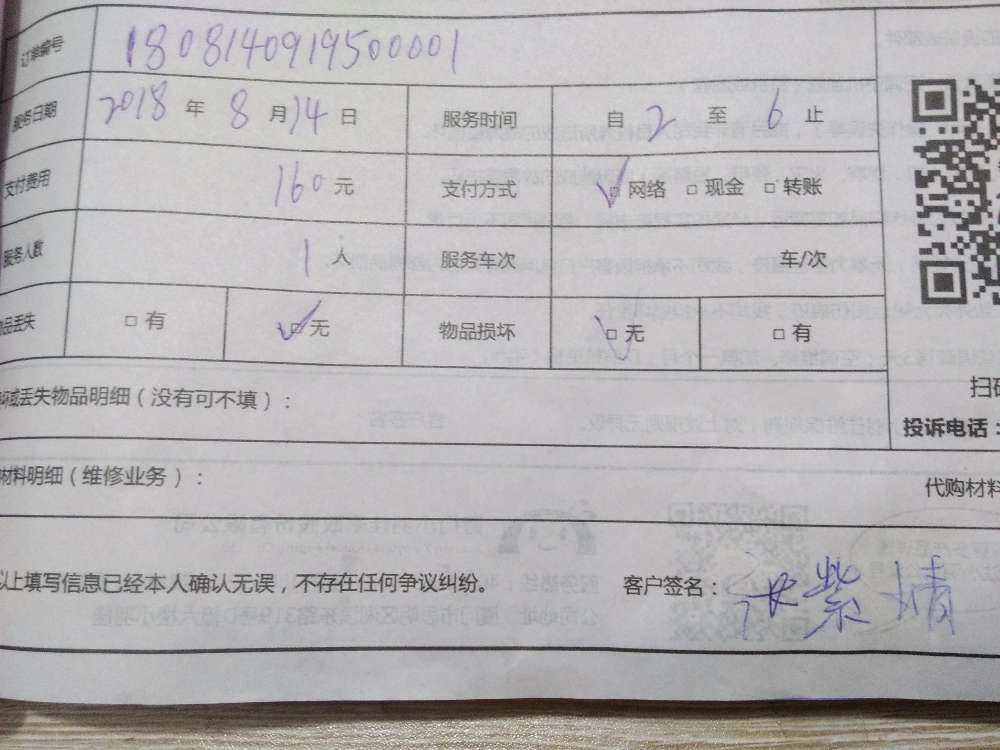 订单编号 180814091950001
服务日期 2018 年 8 月 14 日 服务时间 自 2 至 6 止
支付费用 160 元 支付方式 ☑ 网络 □ 现金 □ 转账
服务人数 1 人 服务车次 车/次
物品丢失 □ 有 ☑ 无 物品损坏 ☑ 无 □ 有
坏或丢失物品明细（没有可不填）：
扫码
投诉电话：
材料明细（维修业务）：
代购材料
以上填写信息已经本人确认无误，不存在任何争议纠纷。 客户签名：紫婧